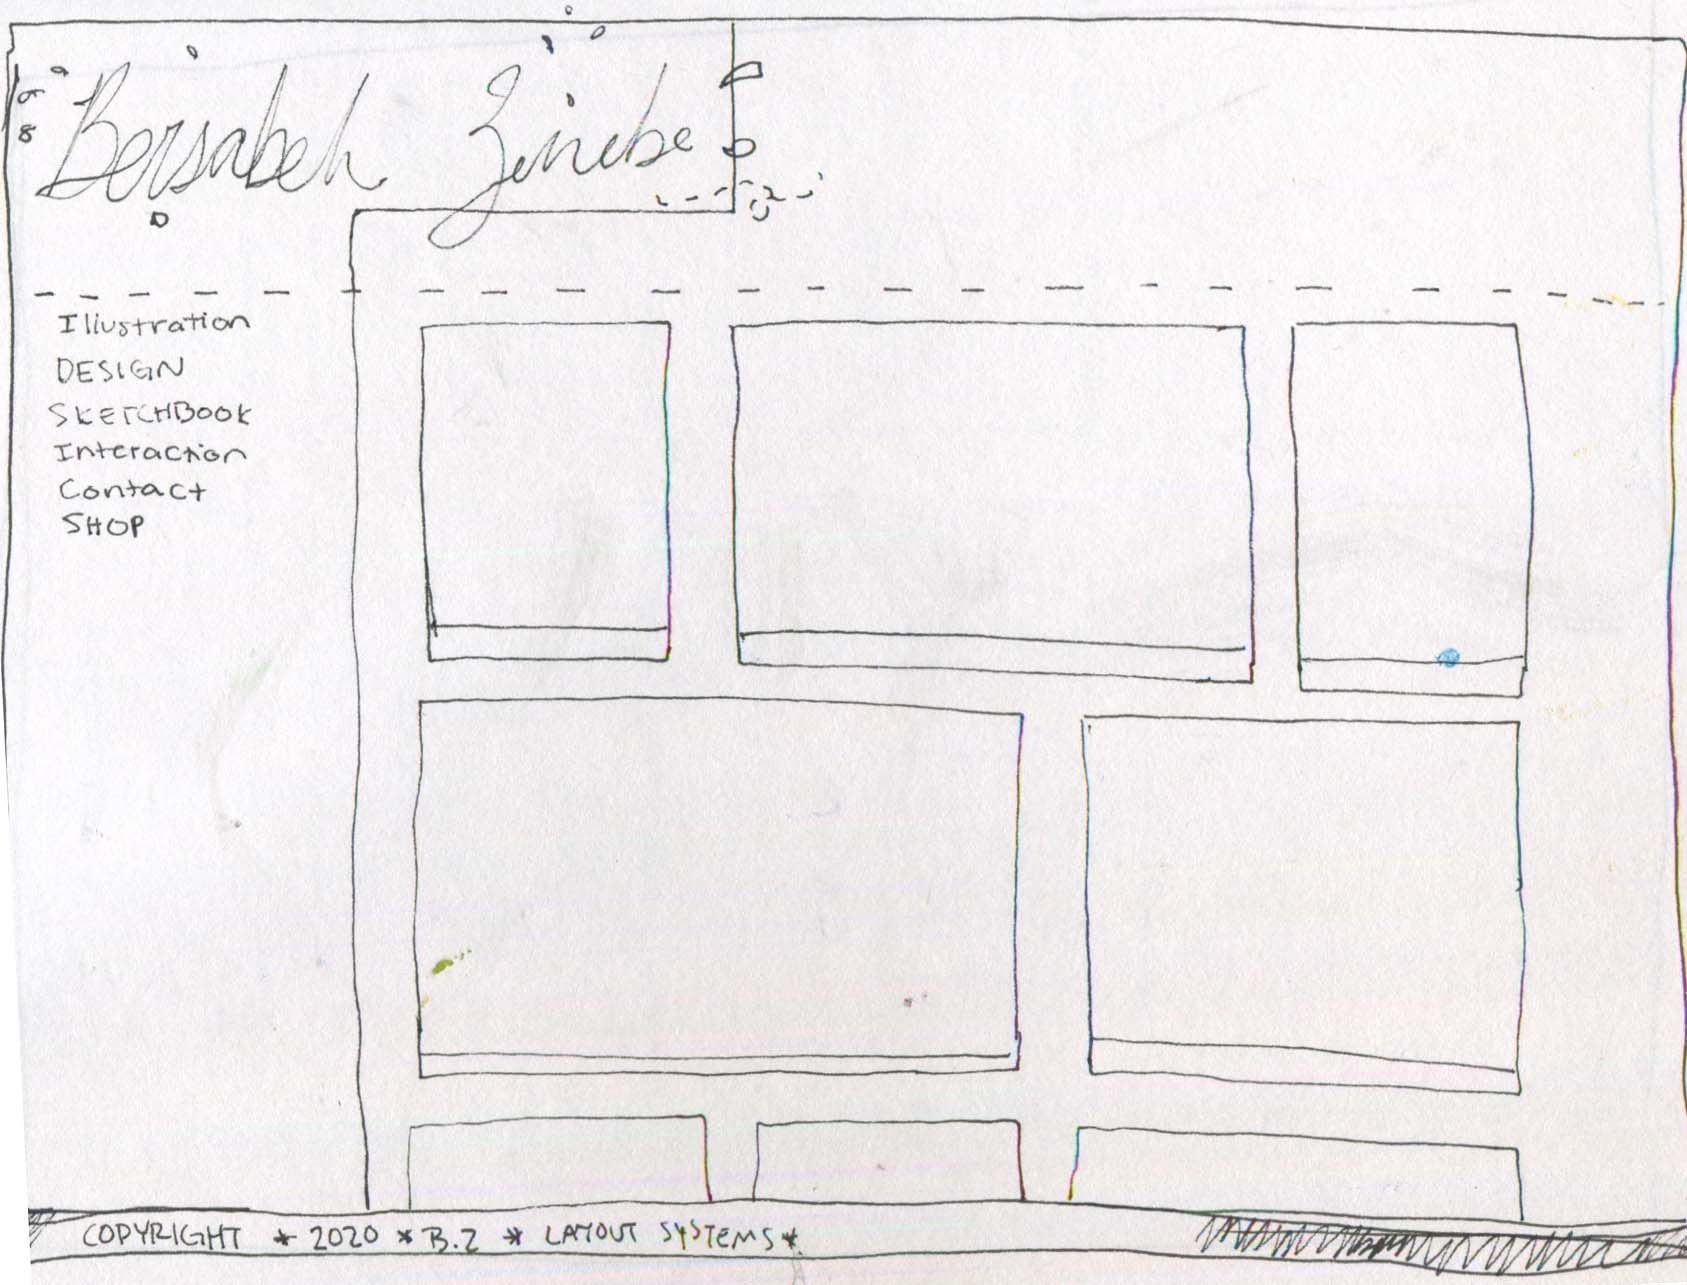 Bersabeh Zinebe
Illustration
DESIGN
SKETCHBOOK
Interaction
Contact
SHOP
COPYRIGHT * 2020 * B.Z * LAYOUT SYSTEMS *